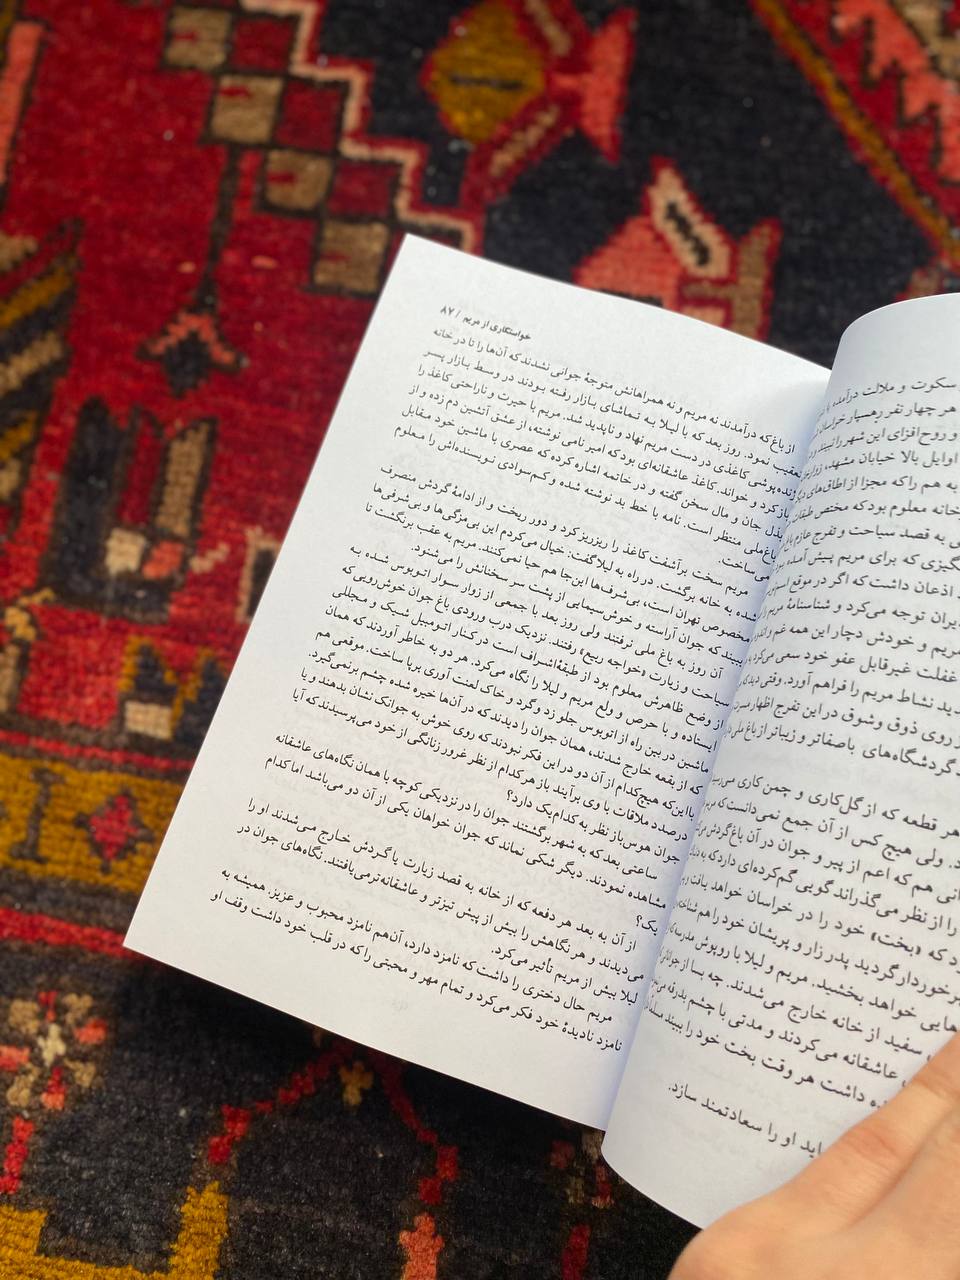 سکوت و ملالت درآمده با
هر چهار نفر رهسپار خراسان
و روح‌افزای این شهر را نبیند و
اوایل بالا خیابان مشهد، زوار
به هم را که مجزا از اطاق‌های
خانه معلوم بود که مختص طبقات
به قصد سیاحت و تفرج عازم باغ
انگیزی که برای مریم پیش آمده بود
اذعان داشت که اگر در موقع
ایران توجه می‌کرد و شناسنامهٔ مریم را
مریم و خودش دچار این همه غم و
غفلت غیرقابل عفو خود سعی می‌کرد به
نشاط مریم را فراهم آورد. وقتی دید که
از روی ذوق و شوق در این تفرج اظهار
گردشگاه‌های باصفاتر و زیباتر از باغ ملی
هر قطعه که از گل‌کاری و چمن کاری می‌رسید
ولی هیچ کس از آن جمع نمی‌دانست که مریم
هم که اعم از پیر و جوان در آن باغ گردش
را از نظر می‌گذراند گویی گم‌کرده‌ای دارد که به دنبال
که «بخت» خود را در خراسان خواهد یافت و
برخوردار گردید پدر زار و پریشان خود را هم
هایی خواهد بخشید. مریم و لیلا با روپوش مدرسه
سفید از خانه خارج می‌شدند. چه بسا از جوانانی
عاشقانه می‌کردند و مدتی با چشم بدرقه
داشت هر وقت بخت خود را ببیند
او را سعادتمند سازد.
خواستگاری از مریم / ۸۷
از باغ که درآمدند نه مریم و نه همراهانش متوجهٔ جوانی نشدند که آن‌ها را تا در خانه
تعقیب نمود. روز بعد که با لیلا به تماشای بازار رفته بودند در وسط بازار پسر
ژنده پوشی کاغذی در دست مریم نهاد و ناپدید شد. مریم با حیرت و ناراحتی کاغذ را
باز کرد و خواند. کاغذ عاشقانه‌ای بود که امیر نامی نوشته، از عشق آتشین دم زده و از
بذل جان و مال سخن گفته و در خاتمه اشاره کرده که عصری با ماشین خود مقابل
باغ‌ملی منتظر است. نامه با خط بد نوشته شده و کم‌سوادی نویسنده‌اش را معلوم
می‌ساخت.
مریم سخت برآشفت کاغذ را ریزریز کرد و دور ریخت و از ادامهٔ گردش منصرف
شده به خانه برگشت. در راه به لیلا گفت: خیال می‌کردم این بی‌مزگی‌ها و بی شرفی‌ها
مخصوص تهران است، بی‌شرف‌ها این‌جا هم حیا نمی‌کنند. مریم به عقب برنگشت تا
ببیند که جوان آراسته و خوش سیمایی از پشت سر سخنانش را می‌شنود.
آن روز به باغ ملی نرفتند ولی روز بعد با جمعی از زوار سوار اتوبوس شده به
سیاحت و زیارت «خواجه ربیع» رفتند. نزدیک درب ورودی باغ جوان خوش‌رویی که
از وضع ظاهرش معلوم بود از طبقهٔ اشراف است در کنار اتومبیل شیک و مجللی
ایستاده و با حرص و ولع مریم و لیلا را نگاه می‌کرد. هر دو به خاطر آوردند که همان
ماشین در بین راه از اتوبوس جلو زد و گرد و خاک لعنت آوری برپا ساخت. موقعی هم
که از بقعه خارج شدند، همان جوان را دیدند که در آن‌ها خیره شده چشم برنمی‌گیرد.
با این‌که هیچ‌کدام از آن دو در این فکر نبودند که روی خوش به جوانک نشان بدهند و یا
درصدد ملاقات با وی برآیند باز هر کدام از نظر غرور زنانگی از خود می‌پرسیدند که آیا
جوان هوس‌باز نظر به کدام‌یک دارد؟
ساعتی بعد که به شهر برگشتند جوان را در نزدیکی کوچه با همان نگاه‌های عاشقانه
مشاهده نمودند. دیگر شکی نماند که جوان خواهان یکی از آن دو می‌باشد اما کدام
یک؟
از آن به بعد هر دفعه که از خانه به قصد زیارت یا گردش خارج می‌شدند او را
می‌دیدند و هر نگاهش را بیش از پیش تیزتر و عاشقانه‌تر می‌یافتند. نگاه‌های جوان در
لیلا بیش از مریم تأثیر می‌کرد.
مریم حال دختری را داشت که نامزد دارد، آن‌هم نامزد محبوب و عزیز. همیشه به
نامزد نادیدهٔ خود فکر می‌کرد و تمام مهر و محبتی را که در قلب خود داشت وقف او